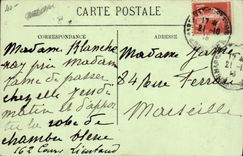 CARTE POSTALE
CORRESPONDANCE
ADRESSE
Madame Blanche
ray prie Madame
Jame de passer
chez elle jeudi
matin et d'apporter
la robe de
chambre bleue
162 Cours Lieutaud
Madame Jame
84 rue Ferrari
Marseille